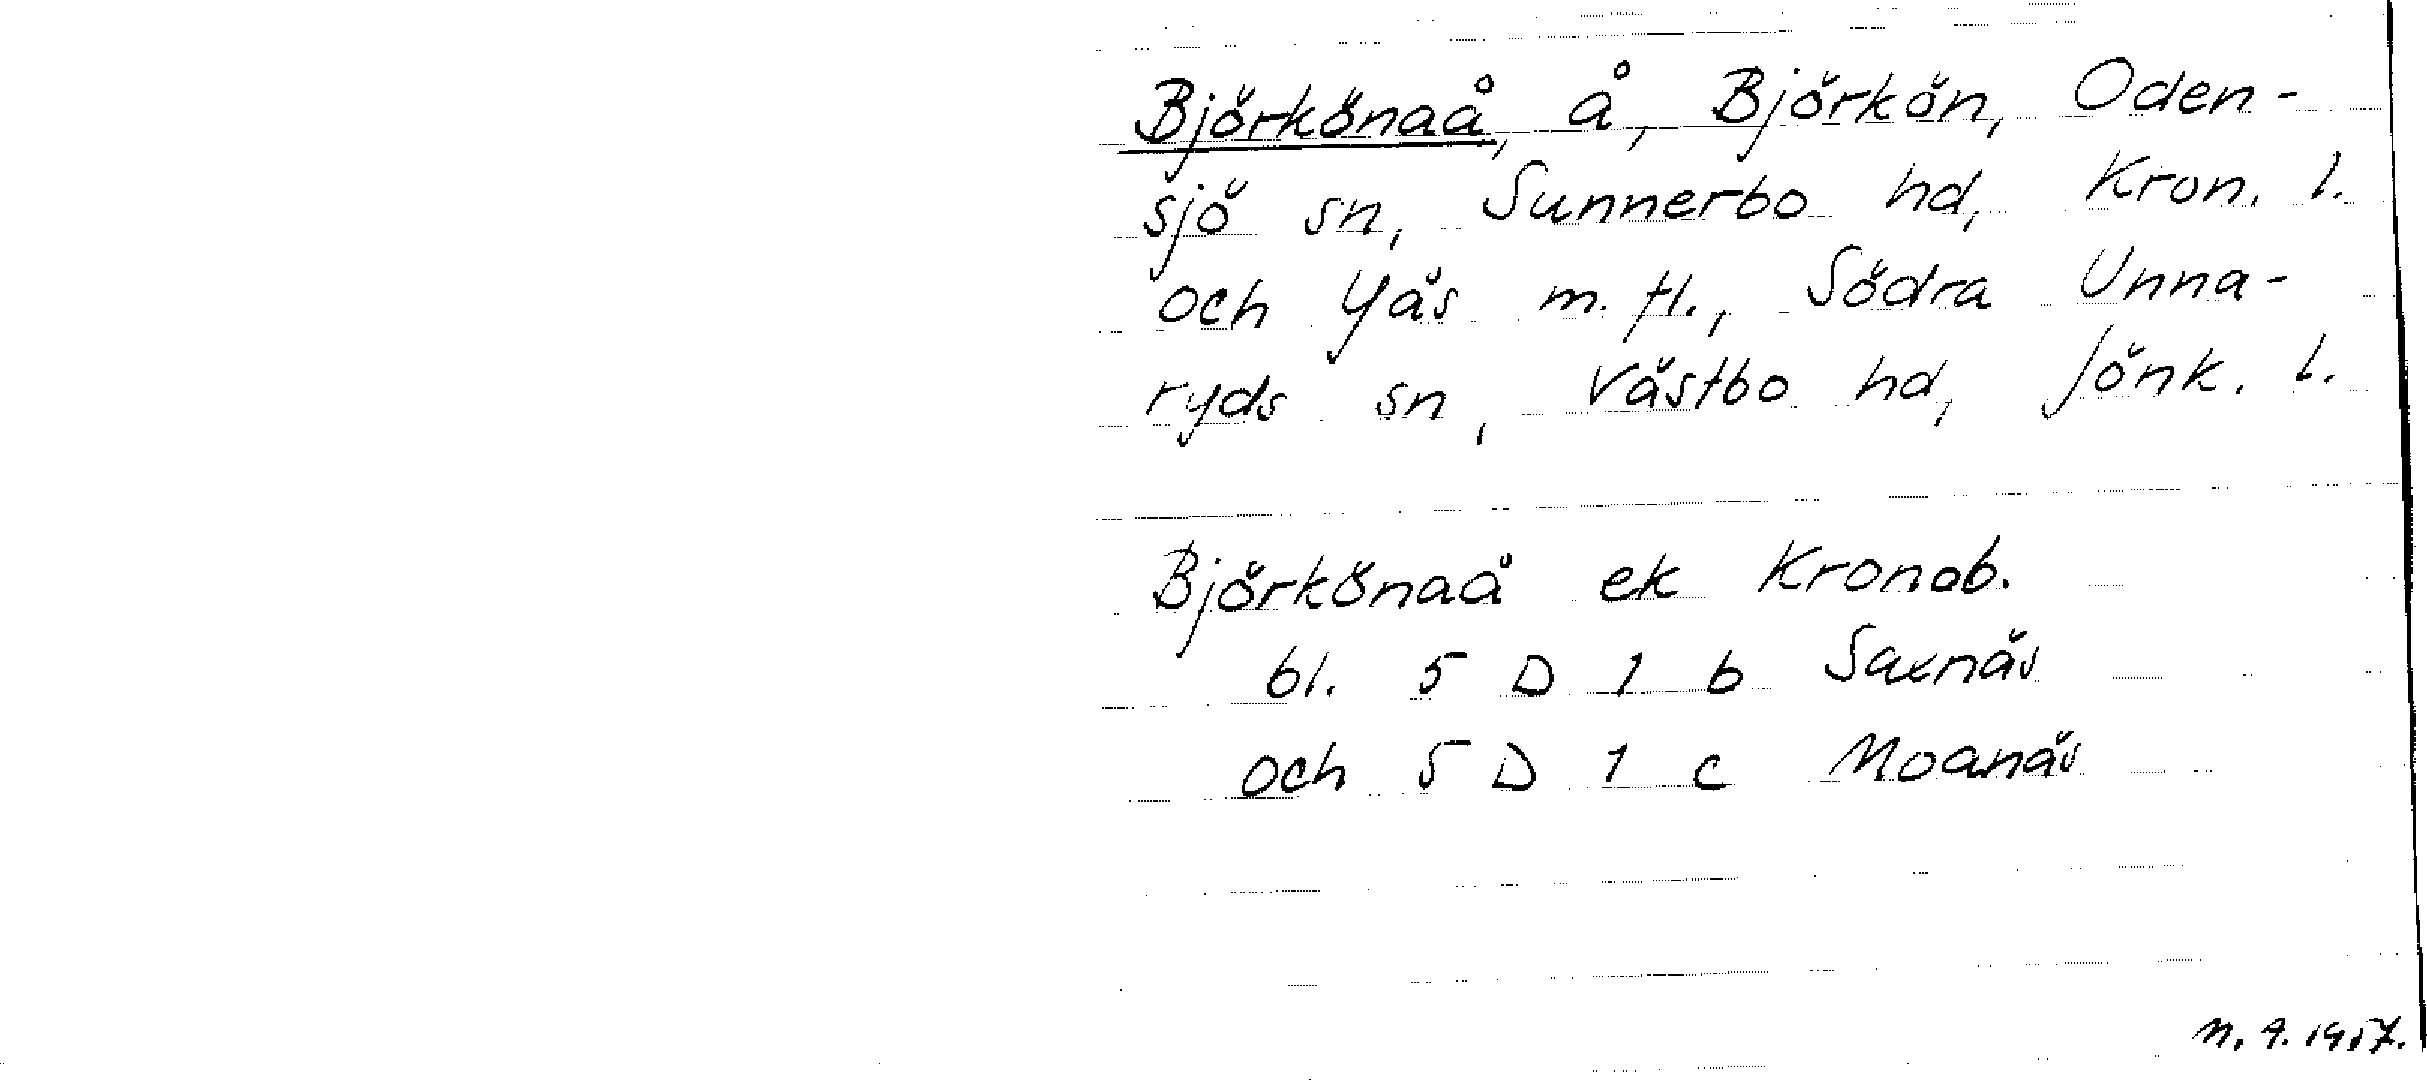 Björkönaå, å, Björkön, Oden-
sjö sn, Sunnerbo hd, Kron. l.
och Yås m. fl., Södra Unna-
ryds sn, Västbo hd, Jönk. l.
Björkönaå ek Kronob.
bl. 5 D 1 b Saxnäs
och 5 D 1 c Moanäs